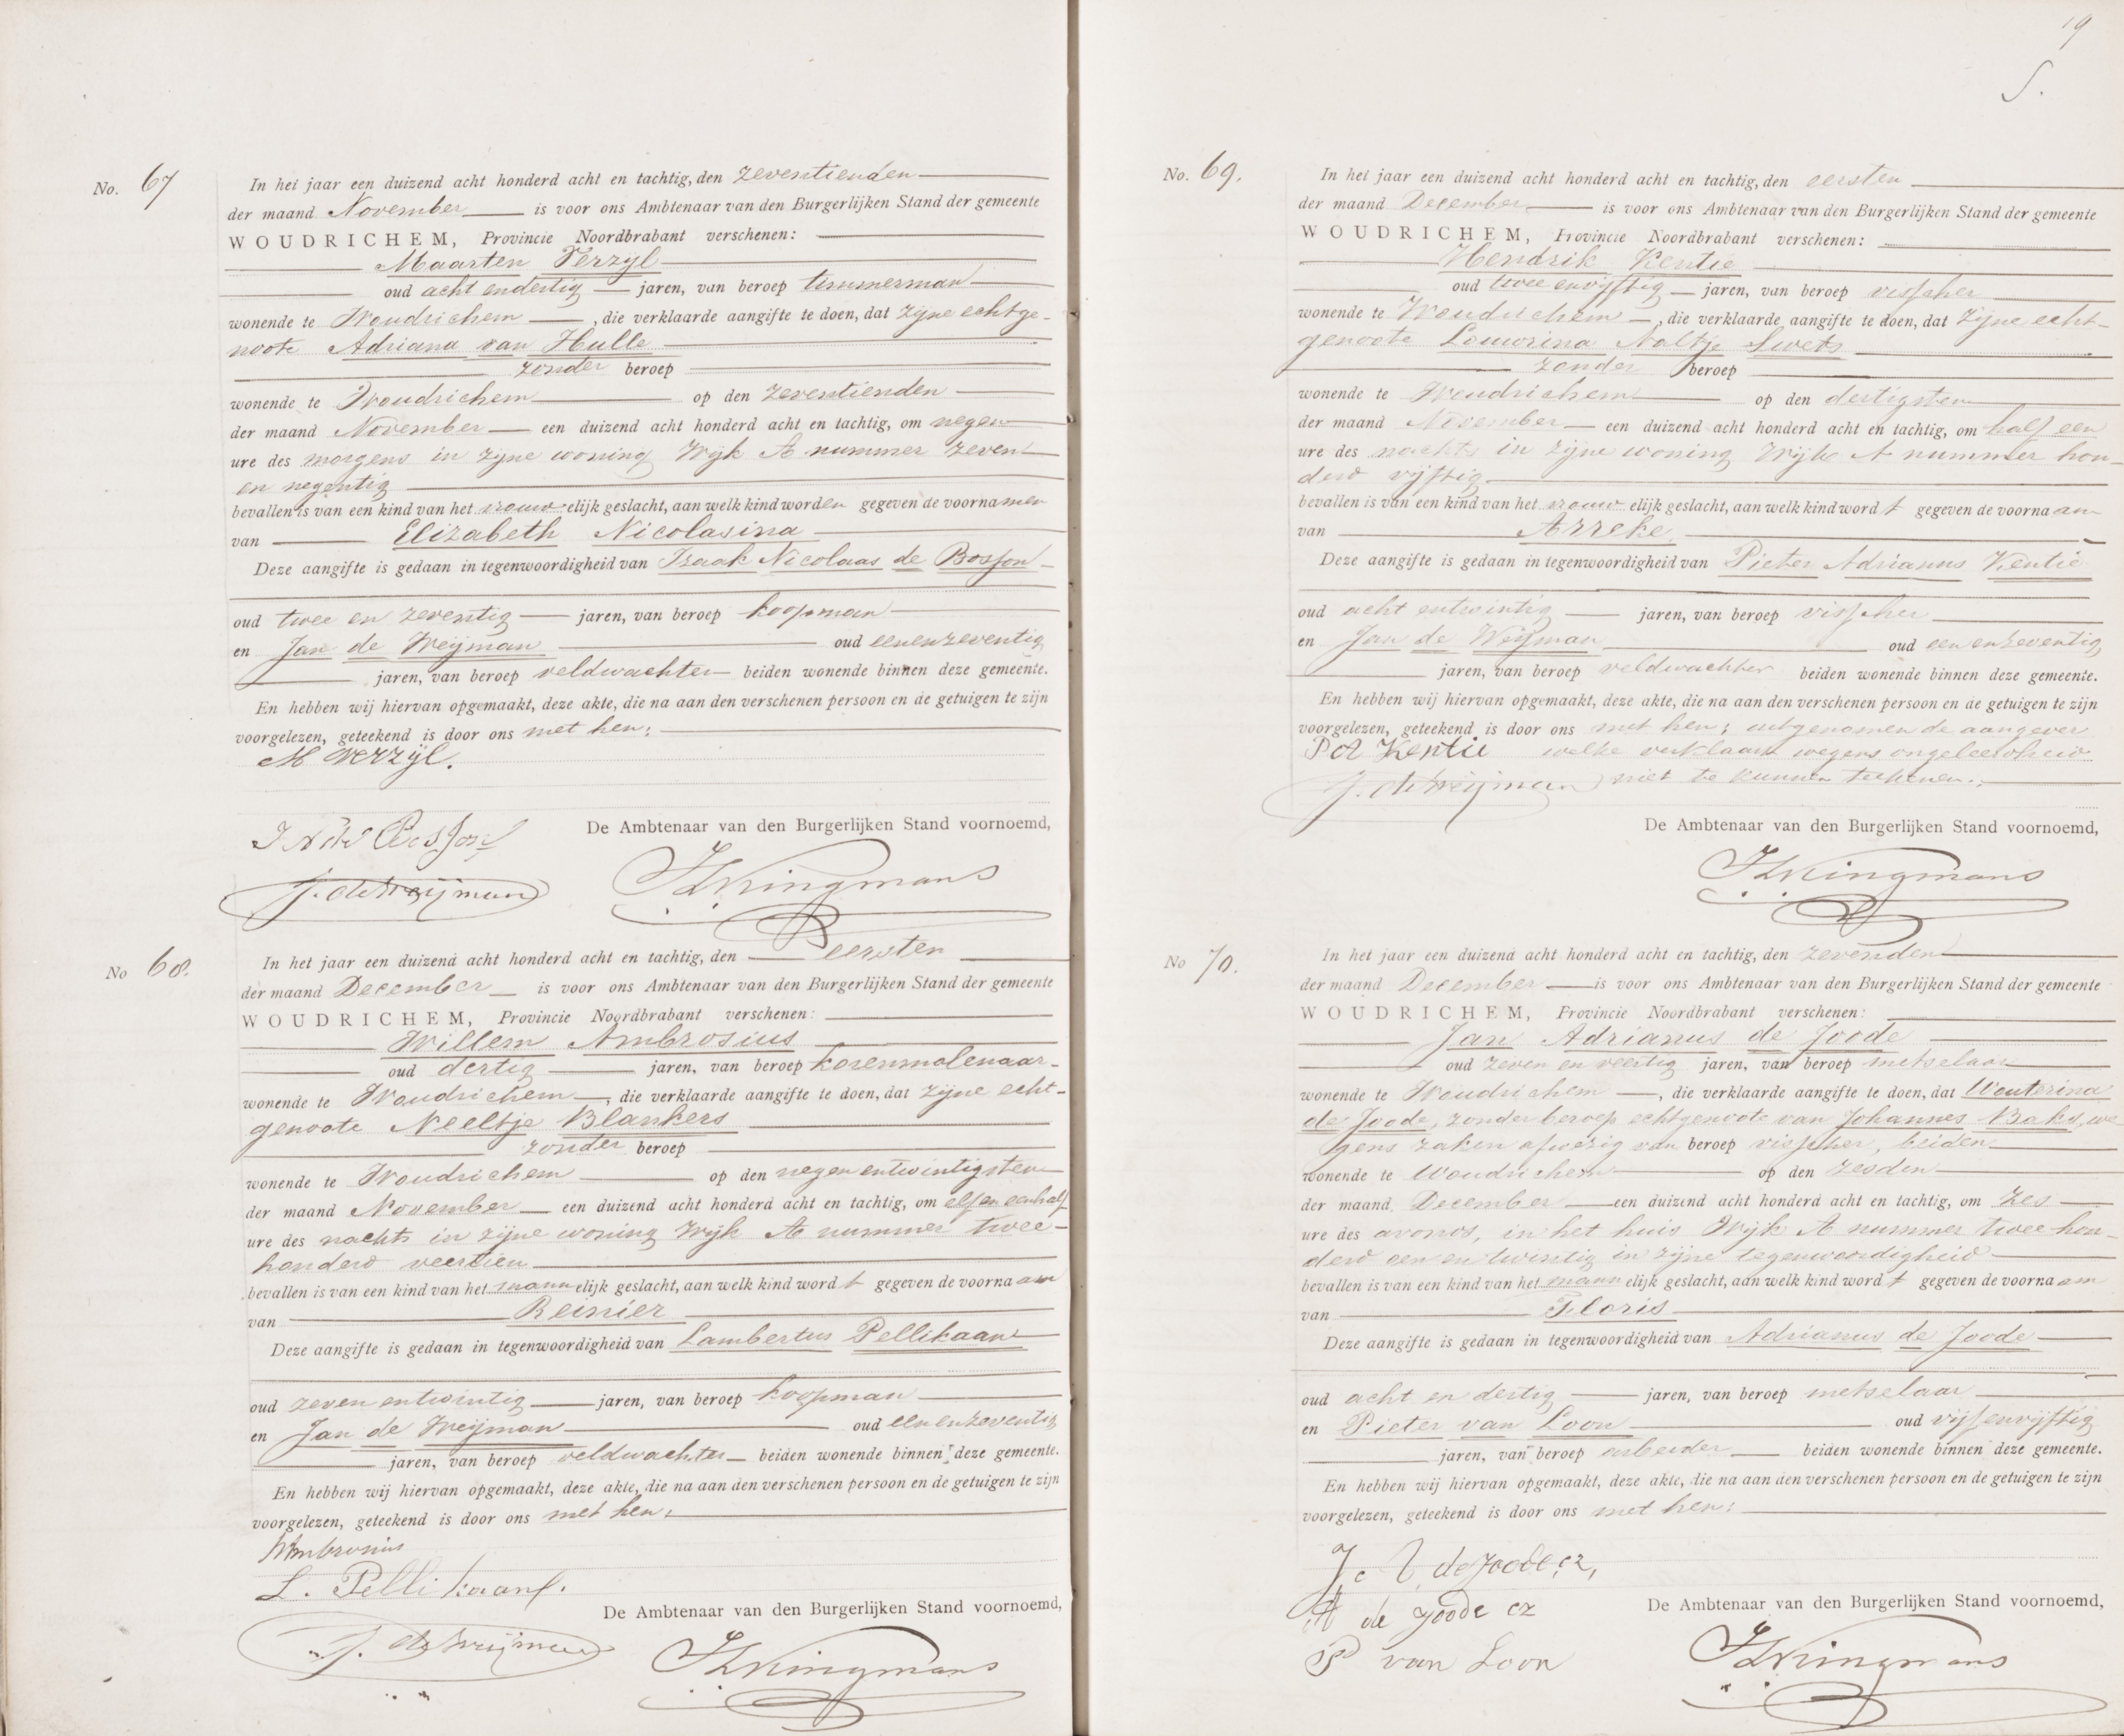 No. 67
In het jaar een duizend acht honderd acht en tachtig, den zeventienden
der maand November is voor ons Ambtenaar van den Burgerlijken Stand der gemeente
WOUDRICHEM, Provincie Noordbrabant verschenen:
Maarten Verzyl
oud acht endertig jaren, van beroep timmerman
wonende te Woudrichem, die verklaarde aangifte te doen, dat zijne echtge-
noote Adriana van Hulle
zonder beroep
wonende te Woudrichem op den zeventienden
der maand November een duizend acht honderd acht en tachtig, om negen
ure des morgens in zijne woning Wijk A nummer zeven
en negentig
bevallen is van een kind van het vrouwelijk geslacht, aan welk kind worden gegeven de voornamen
van Elizabeth Nicolasina
Deze aangifte is gedaan in tegenwoordigheid van Izaak Nicolaas de Bosson
oud twee en zeventig jaren, van beroep koopman
en Jan de Weijman oud eenenzeventig
jaren, van beroep veldwachter beiden wonende binnen deze gemeente.
En hebben wij hiervan opgemaakt, deze akte, die na aan den verschenen persoon en de getuigen te zijn
voorgelezen, geteekend is door ons met hen:
M Verzijl.
De Ambtenaar van den Burgerlijken Stand voornoemd,
J. de Weijman
Kingmans
No 68.
In het jaar een duizend acht honderd acht en tachtig, den eersten
der maand December is voor ons Ambtenaar van den Burgerlijken Stand der gemeente
WOUDRICHEM, Provincie Noordbrabant verschenen:
Willem Ambrosius
oud dertig jaren, van beroep korenmolenaar
wonende te Woudrichem, die verklaarde aangifte te doen, dat zijne echt-
genoote Neeltje Blankers
zonder beroep
wonende te Woudrichem op den negenentwintigsten
der maand November een duizend acht honderd acht en tachtig, om elf en eenhalf
ure des nachts in zijne woning Wijk A nummer twee-
honderd veertien
bevallen is van een kind van het mannelijk geslacht, aan welk kind wordt gegeven de voornaam
van Reinier
Deze aangifte is gedaan in tegenwoordigheid van Lambertus Pellikaan
oud zeven entwintig jaren, van beroep koopman
en Jan de Weijman oud eenenzeventig
jaren, van beroep veldwachter beiden wonende binnen deze gemeente.
En hebben wij hiervan opgemaakt, deze akte, die na aan den verschenen persoon en de getuigen te zijn
voorgelezen, geteekend is door ons met hen:
WAmbrosius
L. Pellikaan
De Ambtenaar van den Burgerlijken Stand voornoemd,
J. de Weijman
Kingmans
19
No. 69.
In het jaar een duizend acht honderd acht en tachtig, den eersten
der maand December is voor ons Ambtenaar van den Burgerlijken Stand der gemeente
WOUDRICHEM, Provincie Noordbrabant verschenen:
Hendrik Kentie
oud twee envijftig jaren, van beroep visscher
wonende te Woudrichem, die verklaarde aangifte te doen, dat zijne echt-
genoote Louwrina Noltje Swets
zonder beroep
wonende te Woudrichem op den dertigsten
der maand November een duizend acht honderd acht en tachtig, om half een
ure des nachts in zijne woning Wijk A nummer hon-
derd vijftig
bevallen is van een kind van het vrouwelijk geslacht, aan welk kind wordt gegeven de voornaam
van Arreke
Deze aangifte is gedaan in tegenwoordigheid van Pieter Adrianus Kentie
oud acht entwintig jaren, van beroep visscher
en Jan de Weijman oud een enzeventig
jaren, van beroep veldwachter beiden wonende binnen deze gemeente.
En hebben wij hiervan opgemaakt, deze akte, die na aan den verschenen persoon en de getuigen te zijn
voorgelezen, geteekend is door ons met hen; uitgenomen de aangever
Kentie welke verklaart wegens ongeleerdheid
J. de Weijman niet te kunnen teekenen.
De Ambtenaar van den Burgerlijken Stand voornoemd,
Kingmans
No 70.
In het jaar een duizend acht honderd acht en tachtig, den zevenden
der maand December is voor ons Ambtenaar van den Burgerlijken Stand der gemeente
WOUDRICHEM, Provincie Noordbrabant verschenen:
Jan Adrianus de Joode
oud zeven en veertig jaren, van beroep metselaar
wonende te Woudrichem, die verklaarde aangifte te doen, dat Wouterina
de Joode, zonder beroep echtgenoote van Johannes Baks, we
gens zaken afwezig van beroep visscher, beiden
wonende te Woudrichem op den zesden
der maand December een duizend acht honderd acht en tachtig, om zes
ure des avonds, in het huis Wijk A nummer twee hon-
derd een en twintig in zijne tegenwoordigheid
bevallen is van een kind van het mannelijk geslacht, aan welk kind wordt gegeven de voornaam
van Floris
Deze aangifte is gedaan in tegenwoordigheid van Adrianus de Joode
oud acht en dertig jaren, van beroep metselaar
en Pieter van Loon oud vijfenvijftig
jaren, van beroep arbeider beiden wonende binnen deze gemeente.
En hebben wij hiervan opgemaakt, deze akte, die na aan den verschenen persoon en de getuigen te zijn
voorgelezen, geteekend is door ons met hen:
de Joode cz,
A de Joode cz
P van Loon
De Ambtenaar van den Burgerlijken Stand voornoemd,
Kingmans